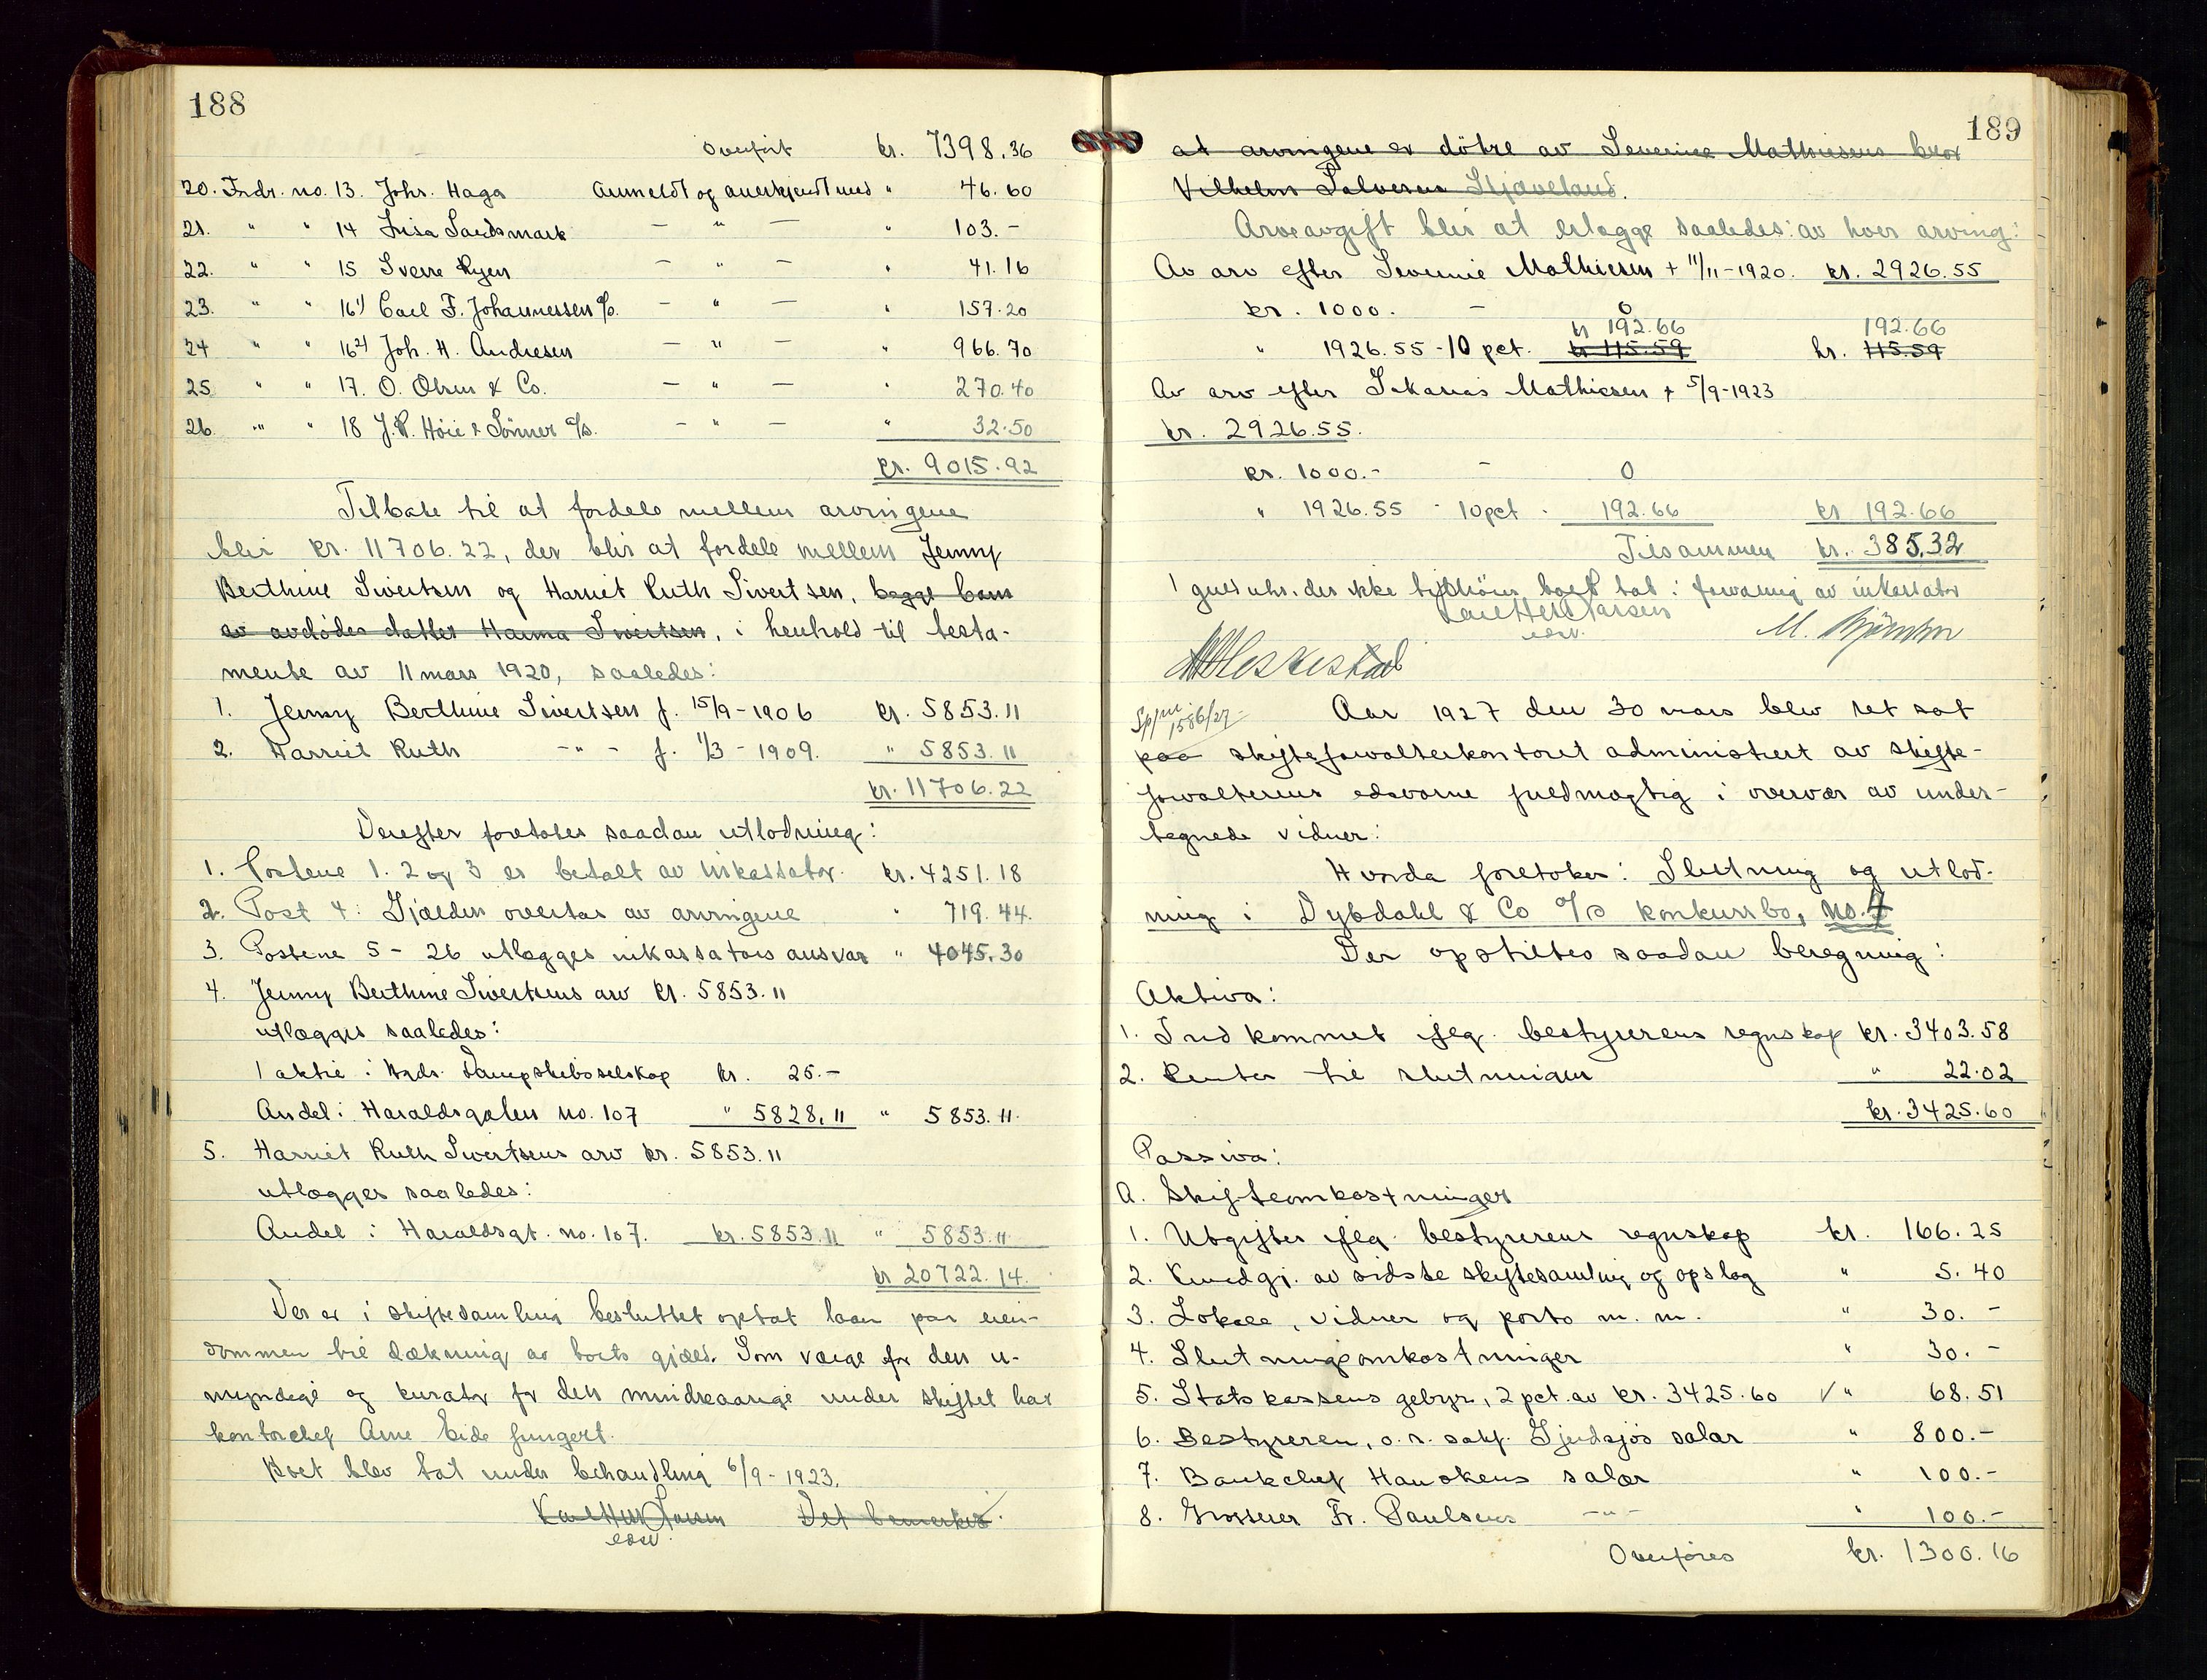 188
Overført kr. 7398.36
20. Fordr. no. 13. Johs. Haga Anmeldt og anerkjendt med " 46.60
21. " " 14 Lisa Sandsmark — " — " 103.-
22. " " 15 Sverre Ryen — " — " 41.16
23. " " 16¹) Carl F. Johannessen A/S. — " — " 157.20
24 " " 16²) Joh. H. Andresen — " — " 966.70
25. " " 17. O. Olsen & Co. — " — " 270.40
26. " " 18 J.R. Höie & Sönner A/S. — " — " 32.50
kr. 9015.92
Tilbake til at fordele mellem arvingene
blir kr. 11706.22, der blir at fordele mellem Jenny
Berthine Sivertsen og Harriet Ruth Sivertsen, begge barn
av avdødes datter Hanna Sivertsen, i henhold til testa-
mente av 11 mars 1920, saaledes:
1. Jenny Berthine Sivertsen f. 15/9-1906 kr. 5853.11
2. Harriet Ruth -"- f. 1/3-1909. " 5853.11
kr. 11706.22
Derefter foretokes saadan utlodning:
1. Postene 1. 2 og 3 er betalt av inkassator. kr. 4251.18
2. Post 4: Gjælden overtas av arvingene " 719.44.
3. Postene 5-26 utlægges inkassators ansvar " 4045.30
4. Jenny Berthine Sivertsens arv kr. 5853.11
utlægges saaledes:
1 aktie i Dampskibsselskap kr. 25.-
Andel i Haraldsgaten no. 107 " 5828.11 " 5853.11.
5. Harriet Ruth Sivertsens arv kr. 5853.11
utlægges saaledes:
Andel i Haraldsgt. no. 107. kr. 5853.11 " 5853.11
kr 20722.14.
Der er i skiftesamling besluttet optat laan paa eien-
dommen til dækning av boets gjæld. Som værge for den u-
myndige og kurator for den mindreaarige under skiftet har
kontorchef Arne Eide fungert.
Boet blev tat under behandling 6/9-1923.
Det bemerkes
edsv.
189
at arvingene er døtre av Severine Mathiesens bror
Vilhelm Salvesen Skjæveland.
Arveavgift blir at erlægge saaledes: av hver arving:
Av arv efter Severine Mathiesen + 11/11-1920. kr. 2926.55
kr. 1000. - 0
kr 192.66 192.66
" 1926.55 - 10 pct. kr 115.59 kr. 115.59
Av arv efter Sakarias Mathiesen + 5/9-1923
kr. 2926.55.
kr. 1000.- - 0
" 1926.55 - 10 pct. 192.66 kr 192.66
Tilsammen kr. 385.32
1 gulduhr, der ikke tilhörer boet tat i forvaring av inkassator
edsv.
Aar 1927 den 30 mars blev ret sat
paa skifteforvalterkontoret administrert av skifte-
forvalterens edsvorne fuldmægtig i overvær av under-
tegnede vidner:
Hvorda foretokes: Slutning og utlod-
ning i Dybdahl & Co A/S konkursbo, no. 4
Der opstiltes saadan beregning:
Aktiva:
1. Indkommet iflg. bestyrerens regnskap kr. 3403.58
2. Renter til slutningen " 22.02
kr. 3425.60
Passiva:
A. Skifteomkostninger
1. Utgifter iflg. bestyrerens regnskap kr. 166.25
2. Kundgj. av sidste skiftesamling og opslag " 5.40
3. Lokale, vidner og porto m. m. " 30.-
4. Slutningsomkostninger " 30.-
5. Statskassens gebyr, 2 pct. av kr. 3425.60 √ " 68.51
6. Bestyreren, o. r. sakf. Gjerdsjös salær " 800.-
7. Bankchef Hauskens salær " 100.-
8. Grosserer Fr. Paulsens -"- " 100.-
Overföres kr. 1300.16